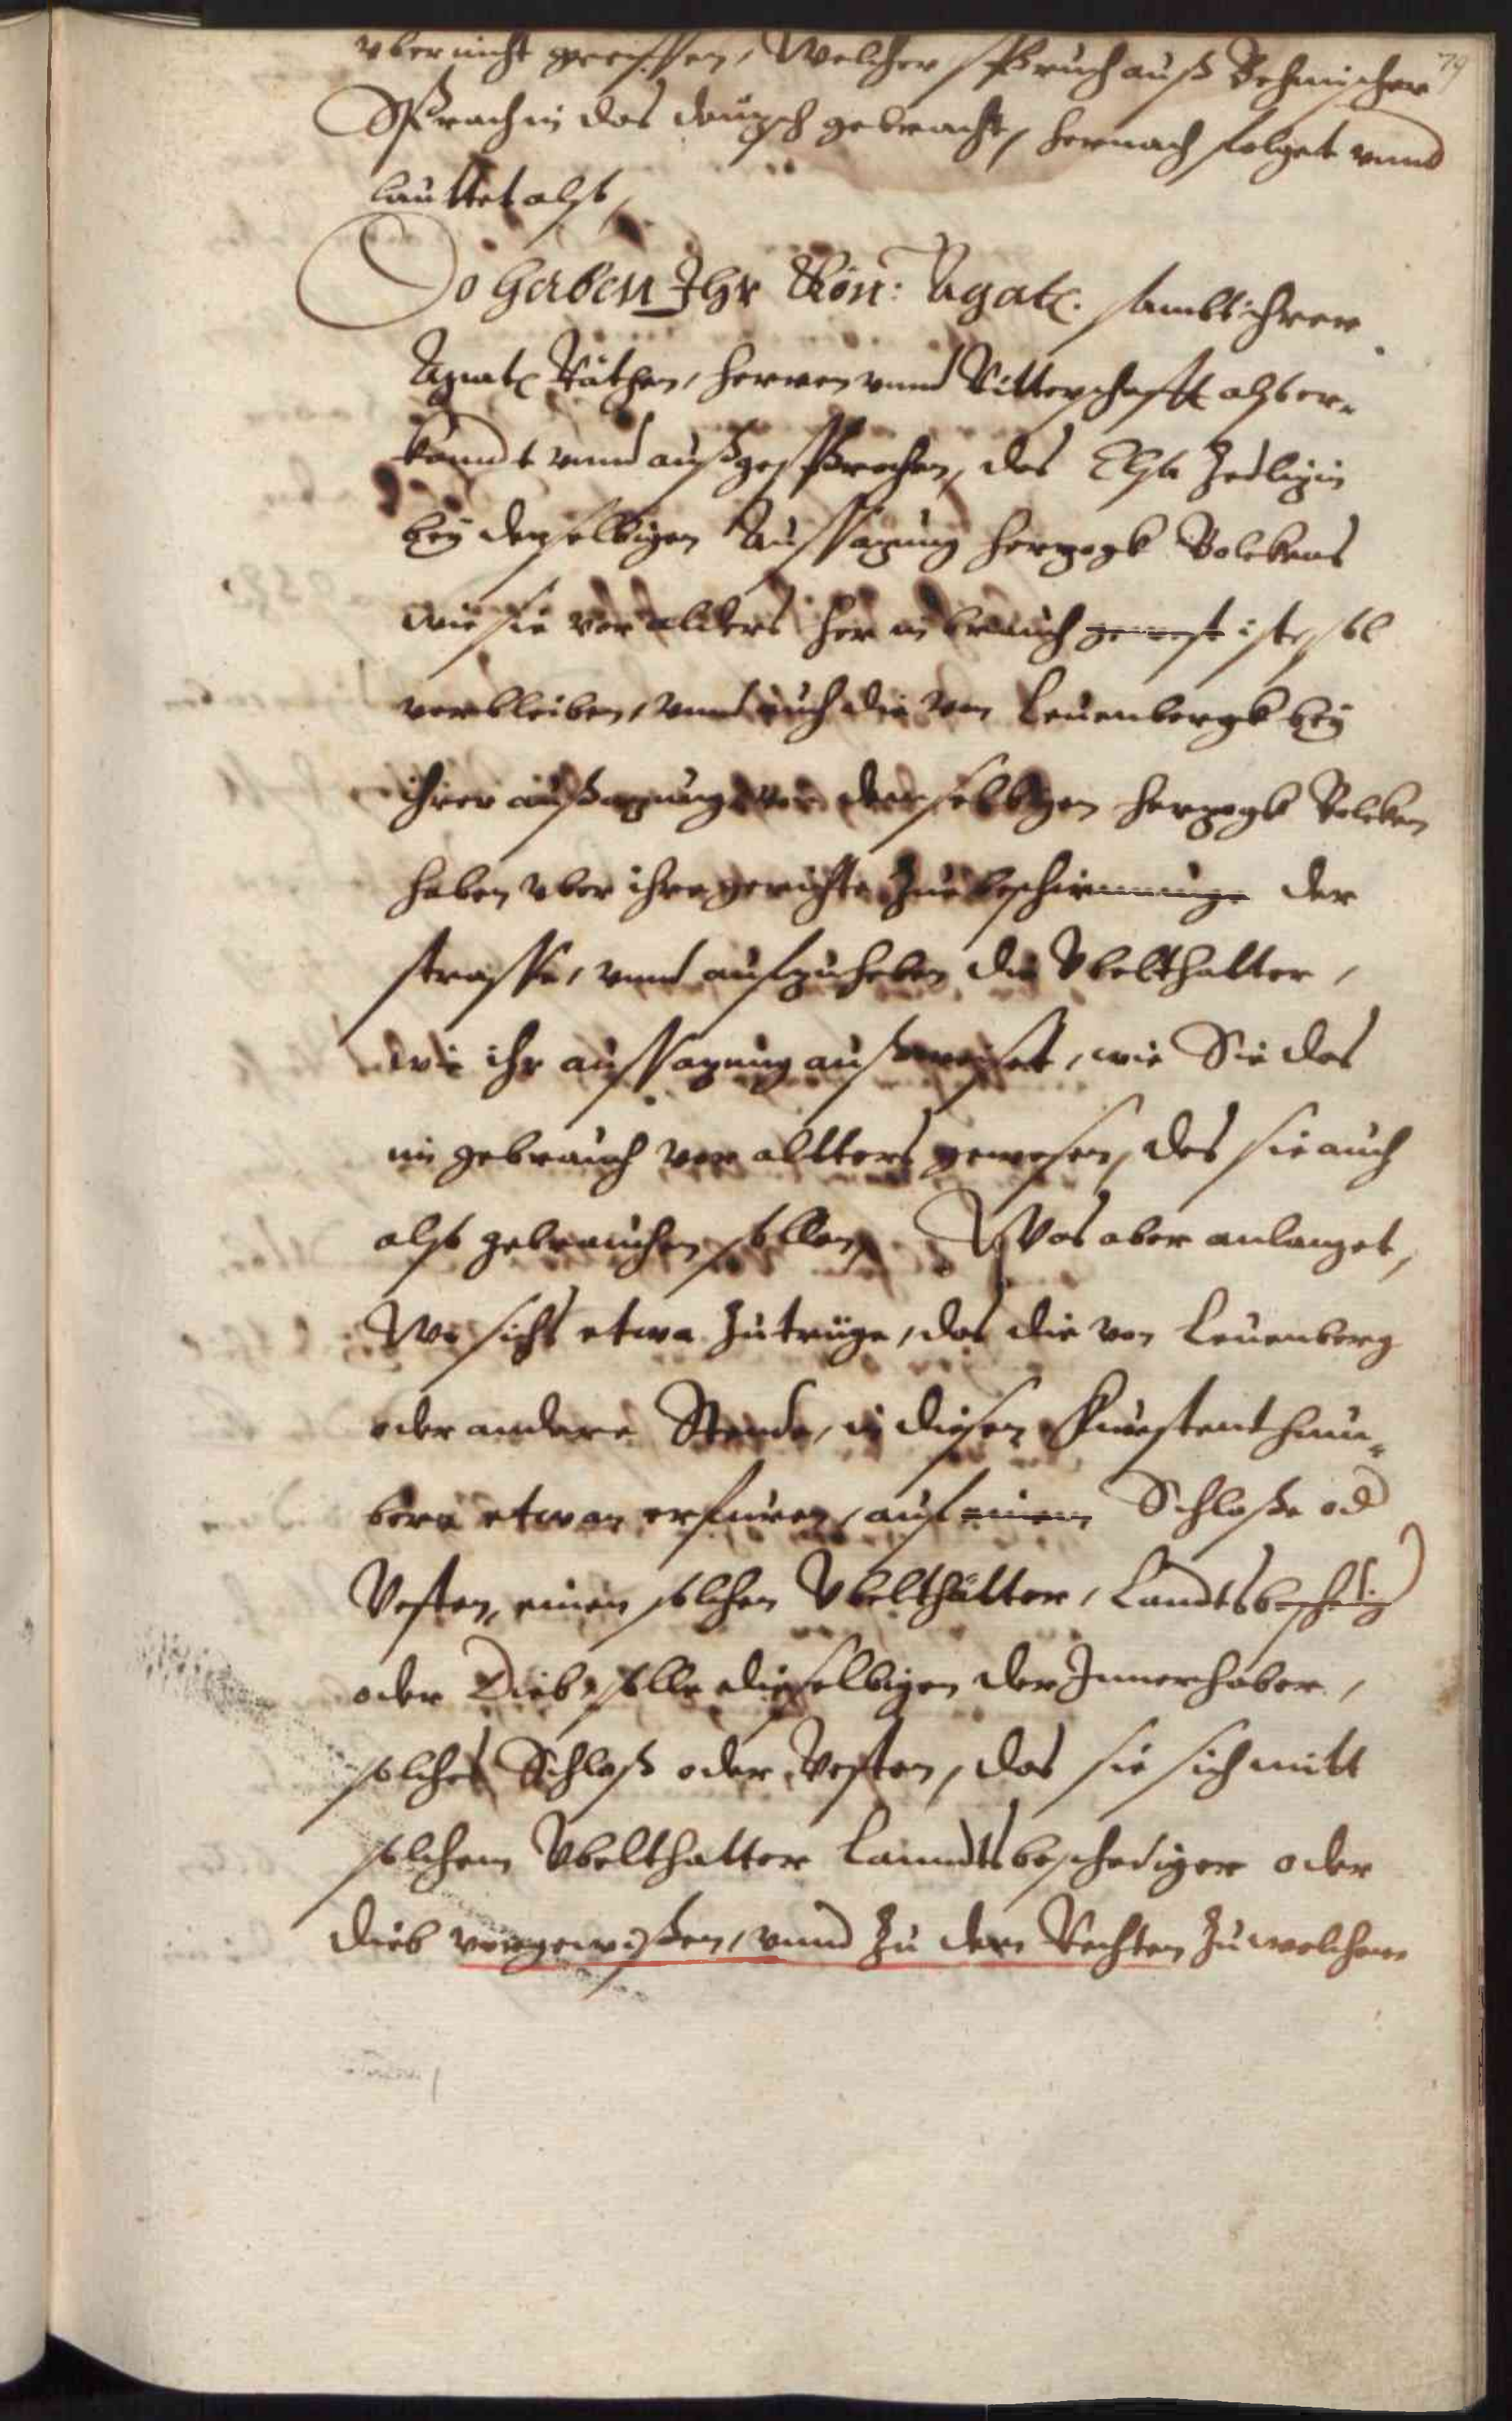 79
vber nicht greiffen, Welcher spruch auß Behmischer
Sprach in das deutzsch gebracht, hernach folget vnnd
lauttet also,
So haben Ihr Kön: Magatt. sambt ihren
Magatt Räthen, herren vnnd Ritterschafft also er-
kandt vnnd außgesprochen, das Elsa Zedlizin
bey derselbigen Aussazung herzogk Bolckens
wie sie vor alders her in brauch gewest ist, sol
verbleiben, vnnd auch die von Leuenbergk bey
ihrer außazung von demselbigen herzogk Bolcken
haben vber ihre gerichte zue beschirmunge der
strasse, vnnd aufzuheben die Vbelthatter,
wie ihr aussazung außweiset, wie Sie das
im gebrauch vor altters gewesen, des sie auch
also gebrauchen sollen, Was aber anlanget,
Wo sichs etwa zutrüge, das die von Leuenberg
oder andere Stende, in diesen Furstenthum-
bern etwan erfuren, auf einem Schloße od
Vesten, einen solchen Vbelthätter, Landtsbeschedig
oder Dieb, solle dieselbigen der Innerhaber,
solches Schloß oder Vesten, das sie sich mitt
solchem Vbelthatter Lanndtsbeschediger oder
dieb vorgewißen, vnnd zu den Rechten zu welchem